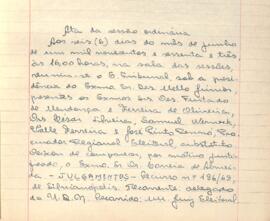 Ata da sessão ordinária
Aos seis (6) dias do mês de junho
de um mil novecentos e sessenta e três
às 16,00 horas, na sala das sessões,
reuniu-se o E. Tribunal, sob a presi-
dência do Exmo. Sr. Des. Mello Júnior,
presentes os Exmos. Srs. Drs. Furtado
de Mendonça e Ferreira de Oliveira,
Drs. Cesar Silveira, Samuel Werneck,
Valle Ferreira e José Pinto Renno, Pro-
curador Regional Eleitoral, substituto
Deixou de comparecer, por motivo justi-
ficado, o Exmo. Sr. Dr. Correia de Almei-
da. - JULGAMENTOS - Recurso nº 186/63,
de Silvianópolis. Recorrente: delegado
da U.D.N. Recorrido: um Juiz Eleitoral